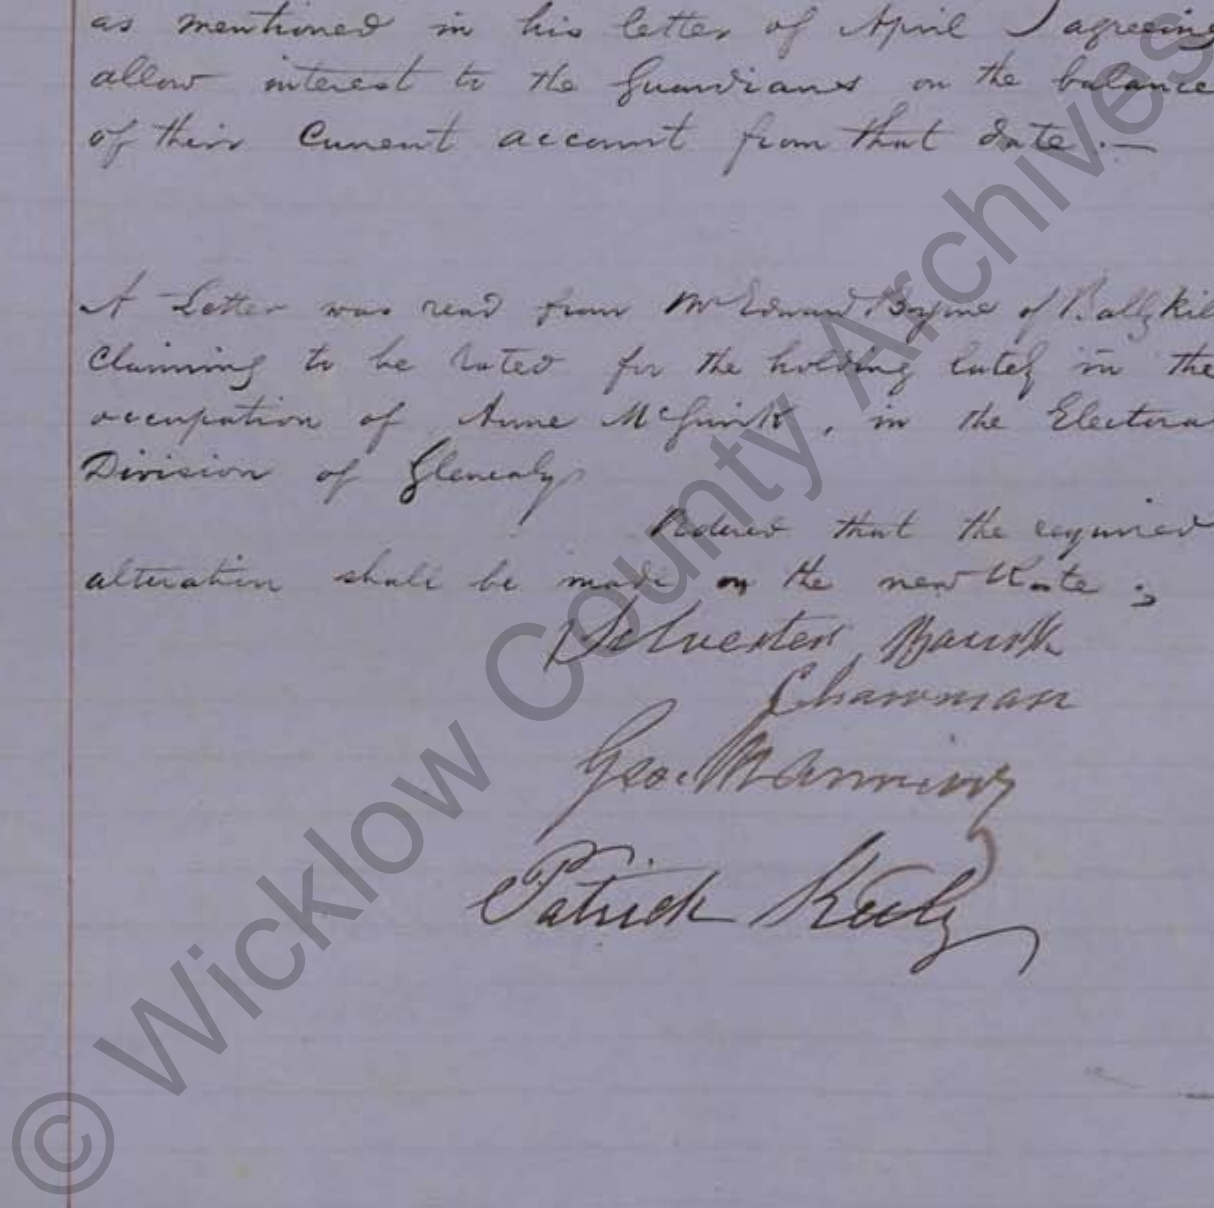 as mentioned in his letter of April agreeing
allow interest to the Guardians on the balance
of their Current account from that date. —
A Letter was read from Mr Edward Byrne of Ballykil
Claiming to be rated for the holding lately in the
occupation of Anne McGuirk, in the Electora
Division of Glenealy
Ordered that the required
alteration shall be made on the new Rate ;
Silvester
Chairman
Geo. Manning
Patrick Keely
© Wicklow County Archives